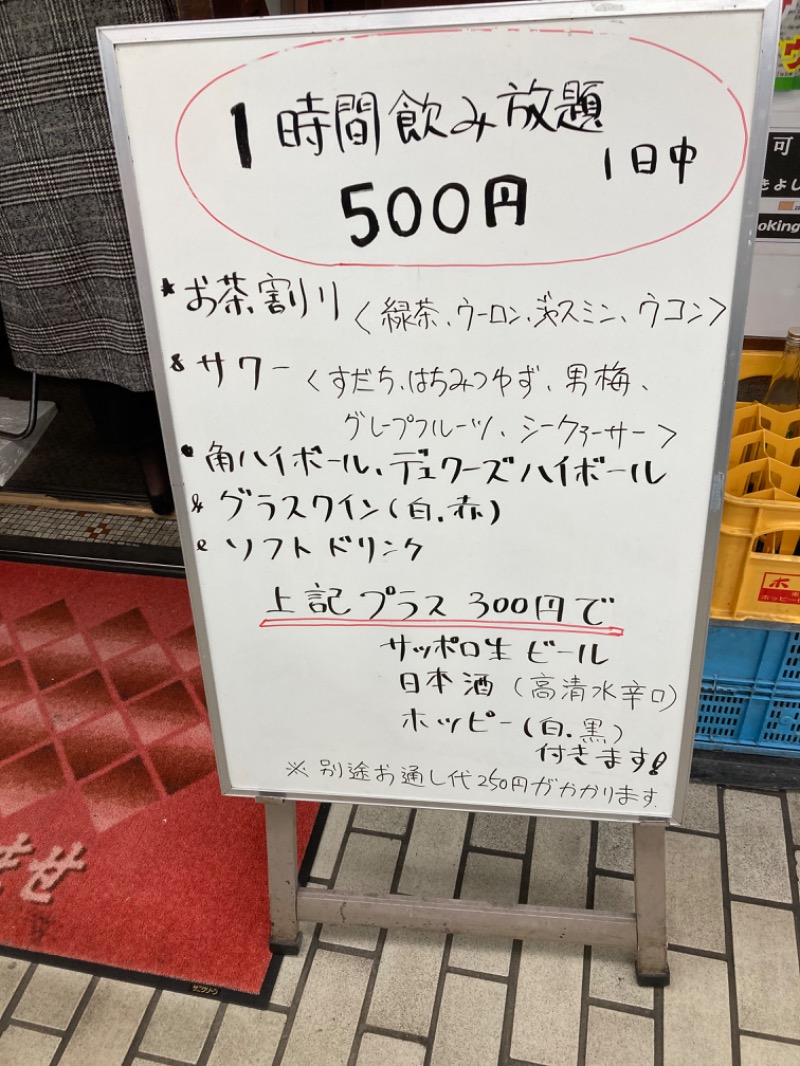 1時間飲み放題
1日中
500円
お茶割り〈緑茶、ウーロン、ジャスミン、ウコン〉
サワー〈すだち、はちみつゆず、男梅、
グレープフルーツ、シークァーサー〉
角ハイボール、デュワーズハイボール
グラスワイン(白.赤)
ソフトドリンク
上記プラス300円で
サッポロ生ビール
日本酒(高清水辛口)
ホッピー(白.黒)
付きます!
※別途お通し代250円がかかります
可
きよし
oking
ホッピー
ませ
サニクリーン